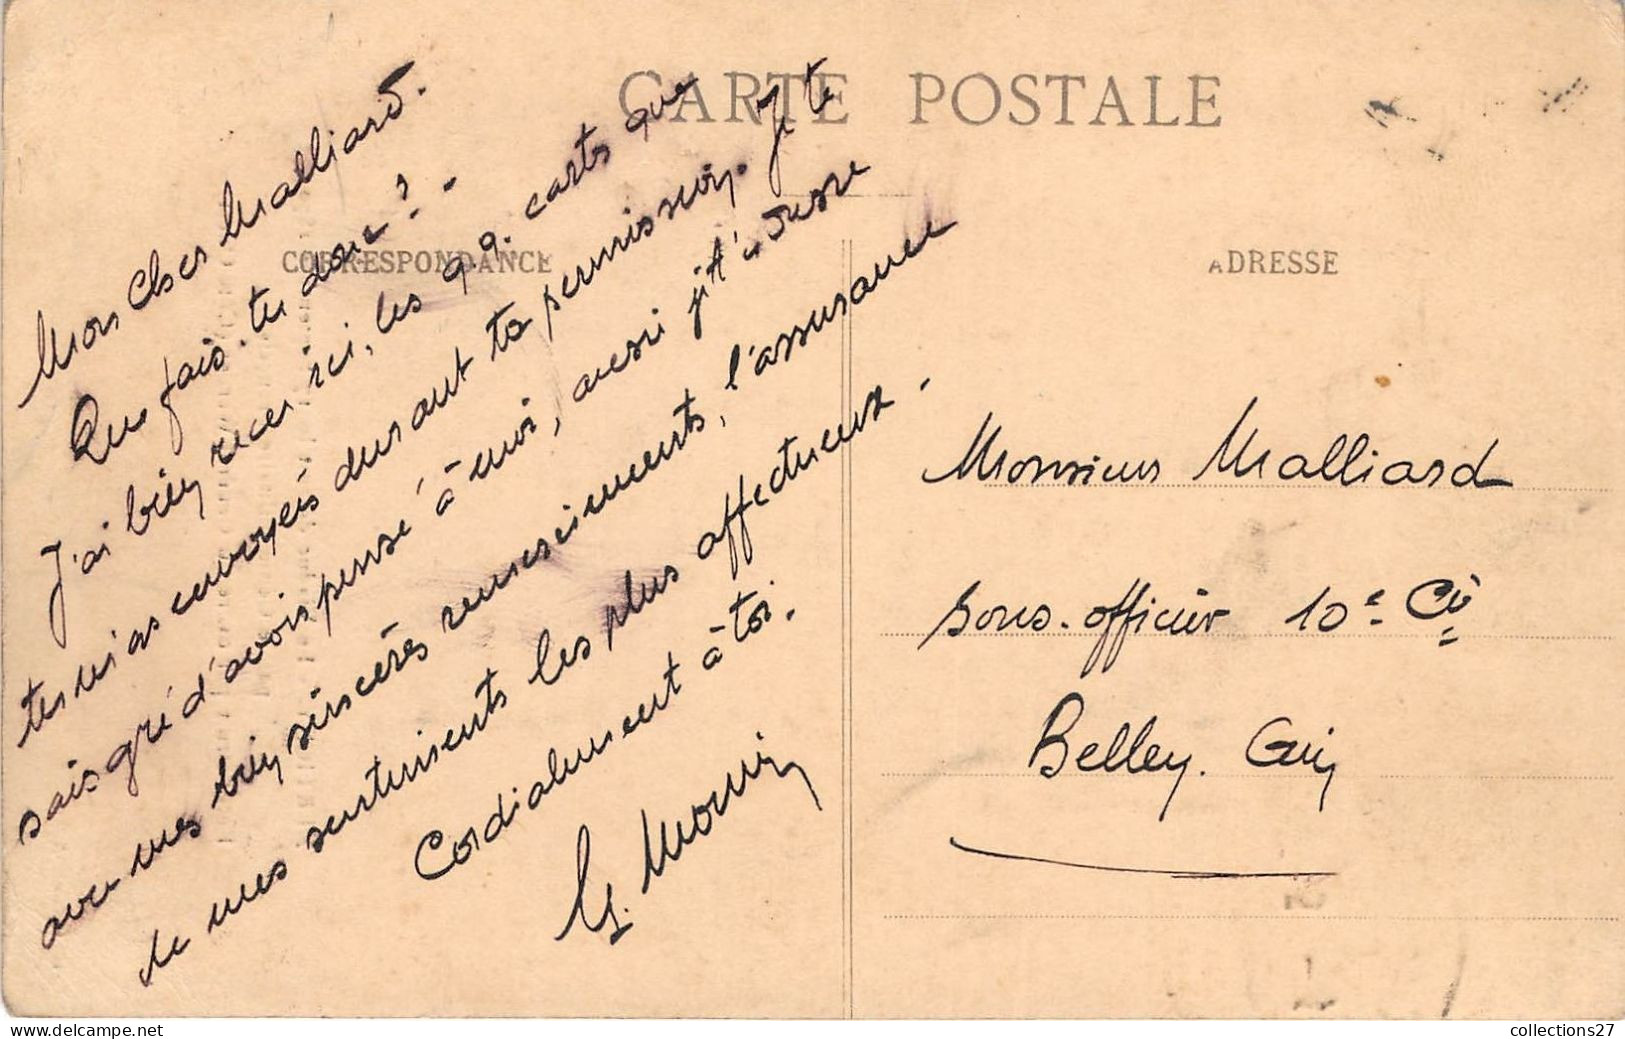 CARTE POSTALE
CORRESPONDANCE
Mon Cher Malliard.
Que fais-tu donc ? -
J'ai bien reçu ici, les q.q. carts que
tu m'as envoyés durant ta permission. Je te
sais gré d'avoir pensé à moi, aussi je t'adresse
avec mes bien sincères remerciements, l'assurance
de mes sentiments les plus affectueux.
Cordialement à toi.
G. Morin
ADRESSE
Monsieur Malliard
Sous-officier 10e Cie
Belley. Ain
collections27